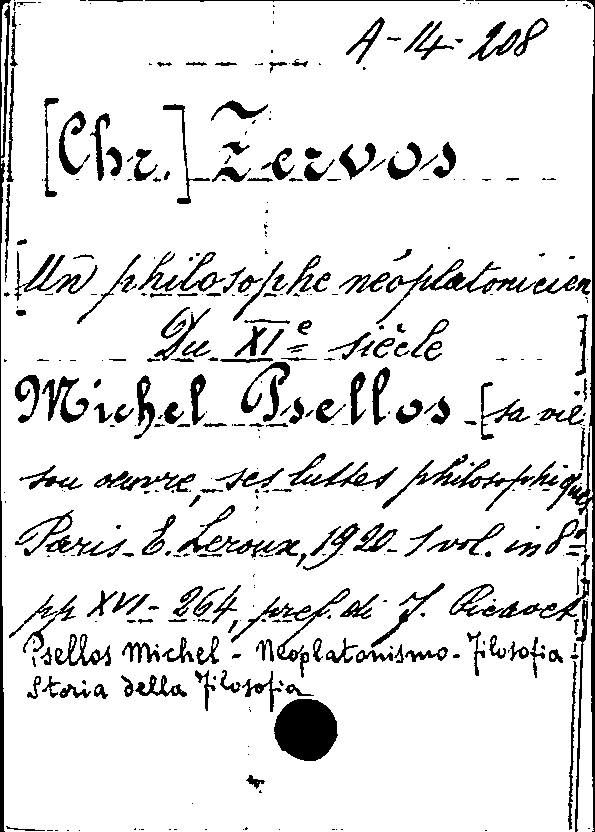 A-14-208
[Chr.] Zervos
[Un philosophe néoplatonicien
Du XIe siècle]
Michel Psellos [sa vie
son oeuvre, ses luttes philosophiques
Paris. E. Leroux, 1920 - 1 vol. in 8°
pp XVI - 264, pref. di J. Picavet
Psellos Michel - Neoplatonismo - Filosofia -
Storia della Filosofia